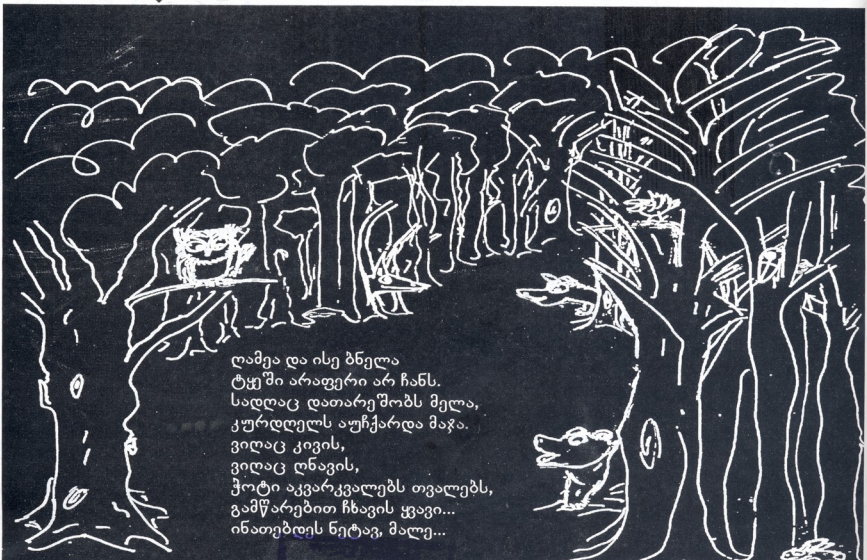 ღამეა და ისე ბნელა
ტყეში არაფერი არ ჩანს.
სადღაც დათარეშობს მელა,
კურდღელს აუჩქარდა მაჯა.
ვიღაც კივის,
ვიღაც ღნავის,
ჭოტი აკვარკვალებს თვალებს,
გამწარებით ჩხავის ყვავი...
ინათებდეს ნეტავ, მალე...